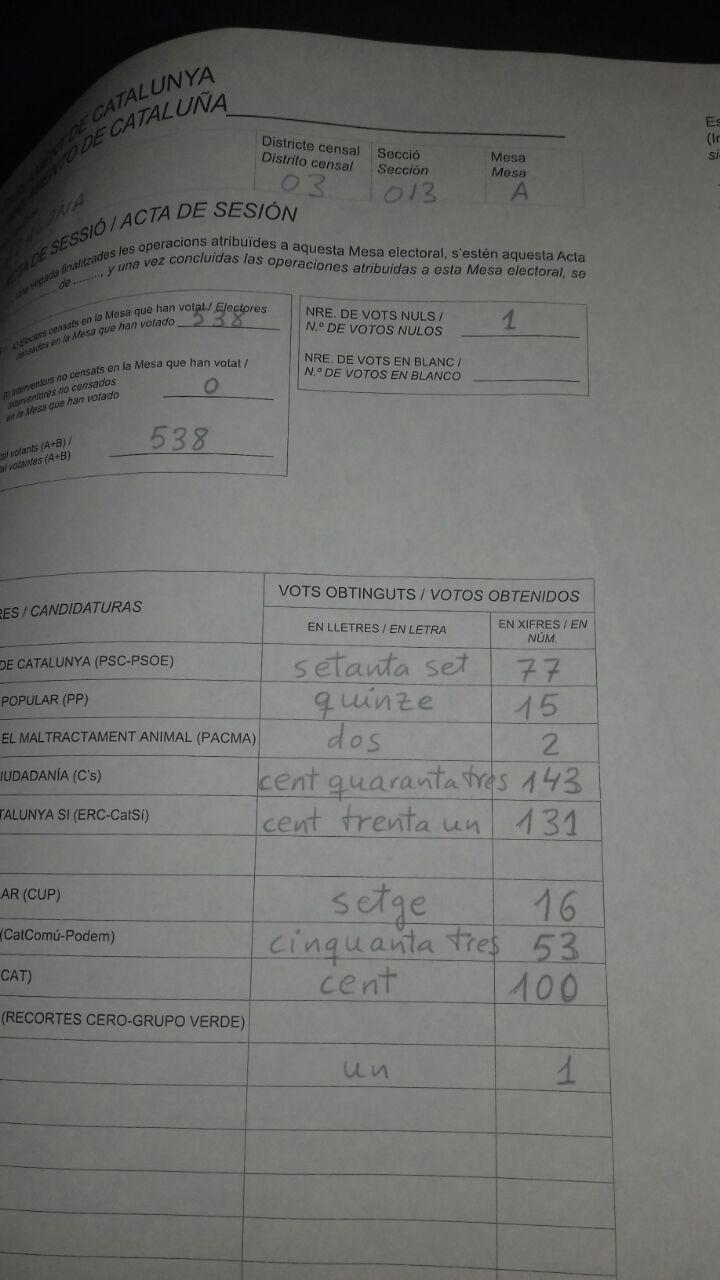 DE CATALUNYA
DE CATALUÑA
Es
(In
si
Districte censal
Distrito censal
03
Secció
Sección
013
Mesa
Mesa
A
DE SESSIÓ / ACTA DE SESIÓN
una vegada finalitzades les operacions atribuïdes a aquesta Mesa electoral, s'estén aquesta Acta
de ........, y una vez concluidas las operaciones atribuidas a esta Mesa electoral, se
A) Electors censats en la Mesa que han votat / Electores
censados en la Mesa que han votado 538
B) Interventors no censats en la Mesa que han votat /
Interventores no censados
en la Mesa que han votado 0
votants (A+B) /
votantes (A+B) 538
NRE. DE VOTS NULS /
N.º DE VOTOS NULOS 1
NRE. DE VOTS EN BLANC /
N.º DE VOTOS EN BLANCO
RES / CANDIDATURAS
VOTS OBTINGUTS / VOTOS OBTENIDOS
EN LLETRES / EN LETRA
EN XIFRES / EN
NÚM.
DE CATALUNYA (PSC-PSOE) setanta set 77
POPULAR (PP) quinze 15
EL MALTRACTAMENT ANIMAL (PACMA) dos 2
IUDADANÍA (C's) cent quaranta tres 143
TALUNYA SI (ERC-CatSí) cent trenta un 131
AR (CUP) setge 16
(CatComú-Podem) cinquanta tres 53
CAT) cent 100
(RECORTES CERO-GRUPO VERDE)
un 1